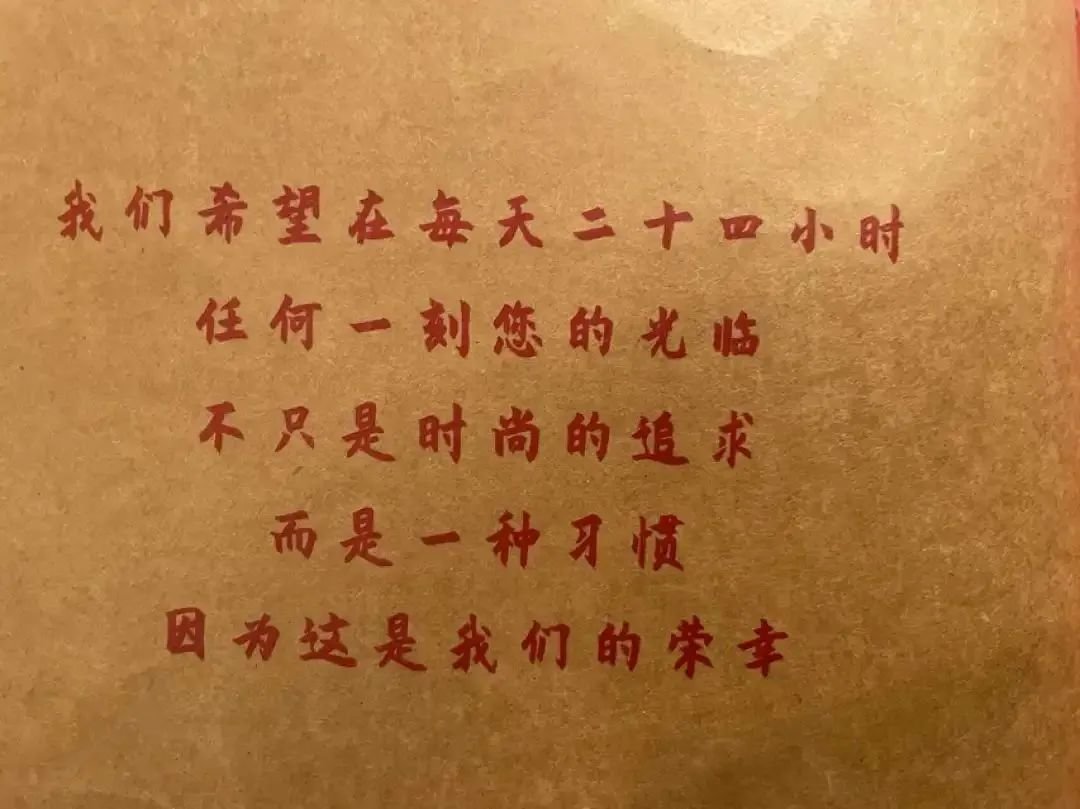 我们希望在每天二十四小时
任何一刻您的光临
不只是时尚的追求
而是一种习惯
因为这是我们的荣幸